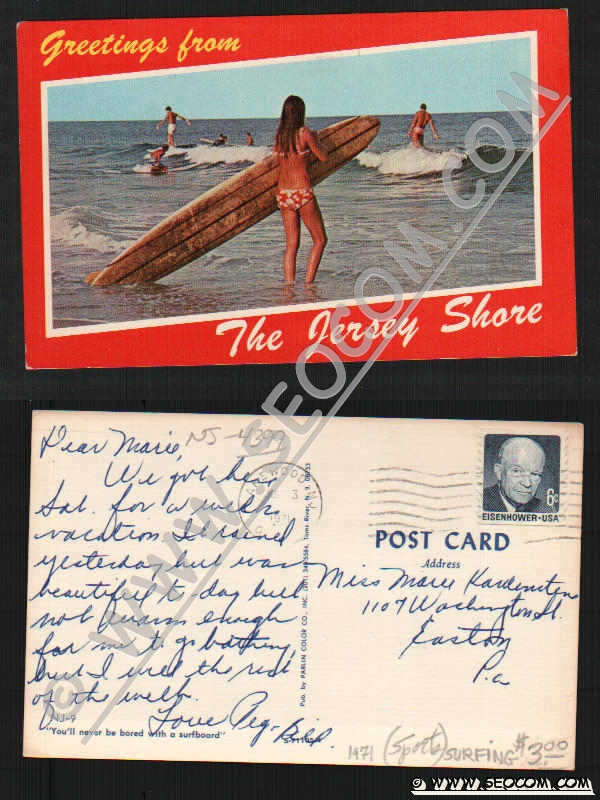 Greetings from
The Jersey Shore
© WWW.SEOCOM.COM
Dear Marie, NJ-4399
We got here
Sat. for a weeks
vacation. It rained
yesterday but was
beautiful to day but
not warm enough
for me to go bathing,
but I will the rest
of the week.
Love Peg - Bill
NJ-9
"You'll never be bored with a surfboard"
Pub. by PARLIN COLOR CO., INC. Toms River, N. J.
WOOD
3
1971
6c
EISENHOWER·USA
POST CARD
Address
Miss Marie
1107 Washington St.
Easton
Pa
1971 (Sports) SURFING $3.00
© WWW.SEOCOM.COM